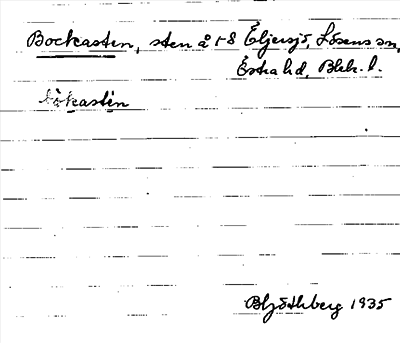 Bockasten, sten å 1-8 Eljersjö, Lösens sn,
Östra hd, Blek. l.
båkastèn
Bhj Öthberg 1935